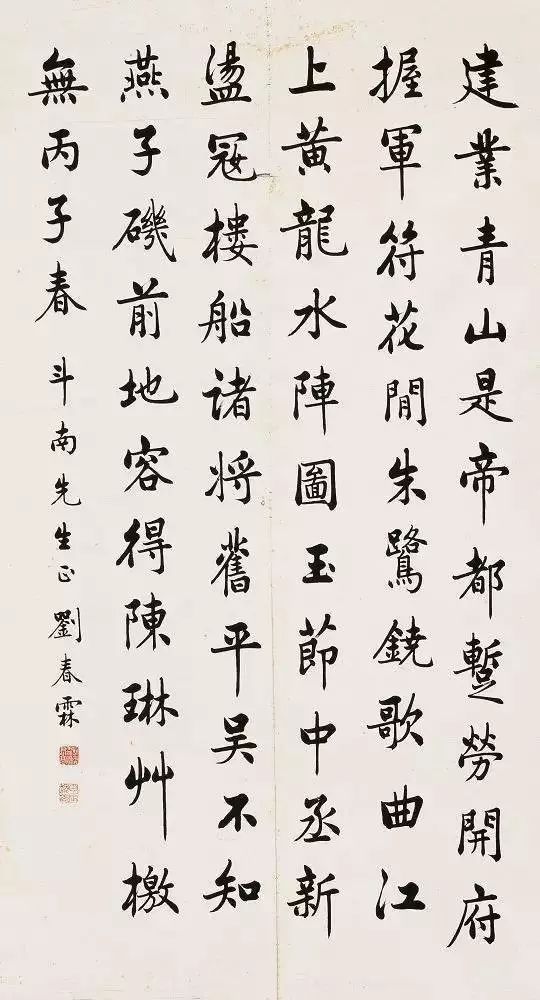 建業青山是帝都蹔勞開府
握軍符花閒朱鷺鐃歌曲江
上黄龍水陣圖玉節中丞新
盪冦樓船諸將舊平吳不知
燕子磯前地容得陳琳艸檄
無丙子春 斗南先生正 劉春霖